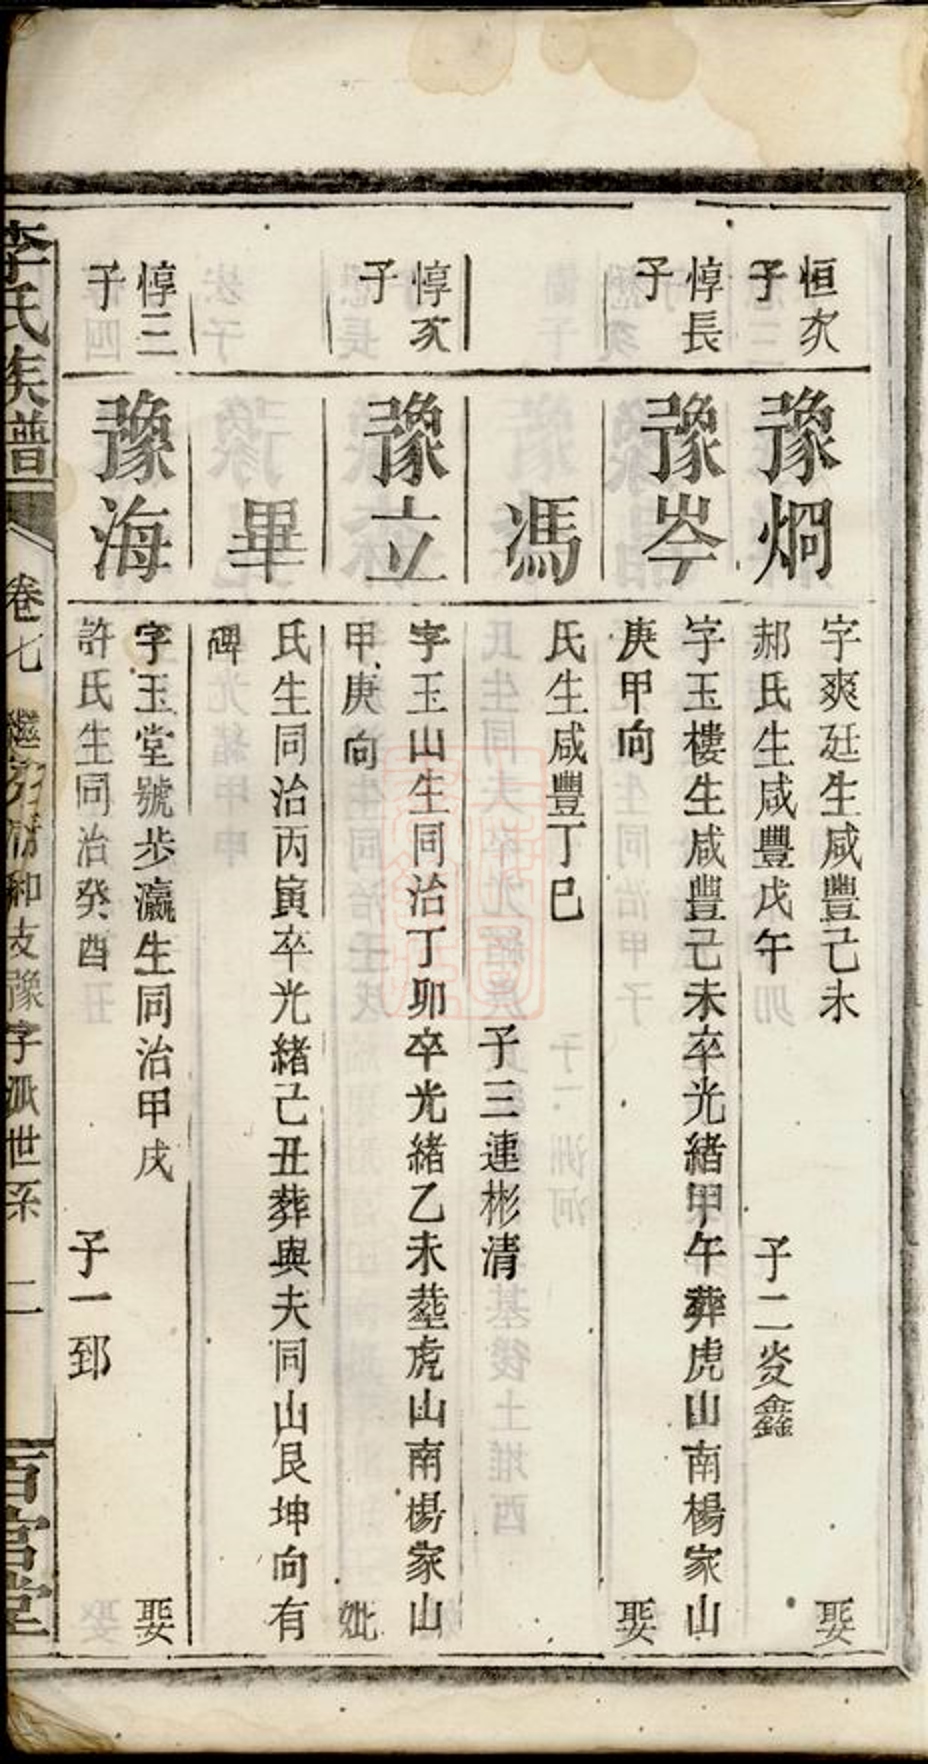 恒次
子
豫烱
字爽廷生咸豐己未 娶
郝氏生咸豐戊午 子二炎鑫
惇長
子
豫岑
字玉樓生咸豐己未卒光緒甲午葬虎山南楊家山
庚甲向 娶
馮
氏生咸豐丁巳
子三連彬清
惇次
子
豫立
字玉山生同治丁卯卒光緒乙未塟虎山南楊家山
甲庚向 妣
畢
氏生同治丙寅卒光緒己丑葬與夫同山艮坤向有
碑
惇三
子
豫海
字玉堂號步瀛生同治甲戌 娶
許氏生同治癸酉 子一郅
李氏族譜 卷七 繼 支豫字派世系 二 百官堂